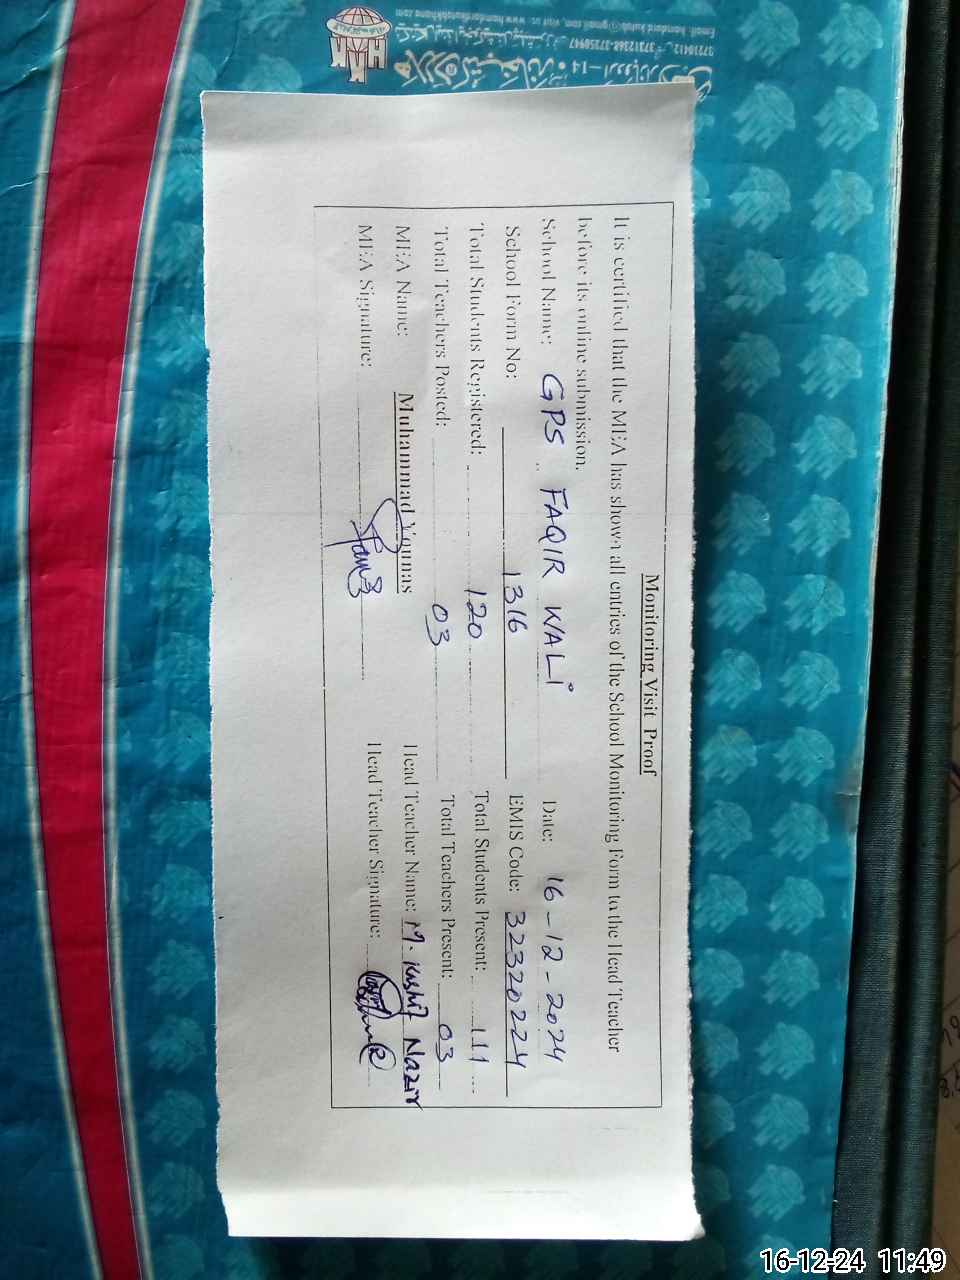 Monitoring Visit Proof
It is certified that the MEA has shown all entries of the School Monitoring Form to the Head Teacher
before its online submission.
School Name: GPS FAQIR WALI Date: 16-12-2024
School Form No: 1316 EMIS Code: 32320224
Total Students Registered: 120 Total Students Present: 111
Total Teachers Posted: 03 Total Teachers Present: 03
MEA Name: Muhammad Younas Head Teacher Name: M. Kashif Nazir
MEA Signature: Head Teacher Signature:
16-12-24 11:49